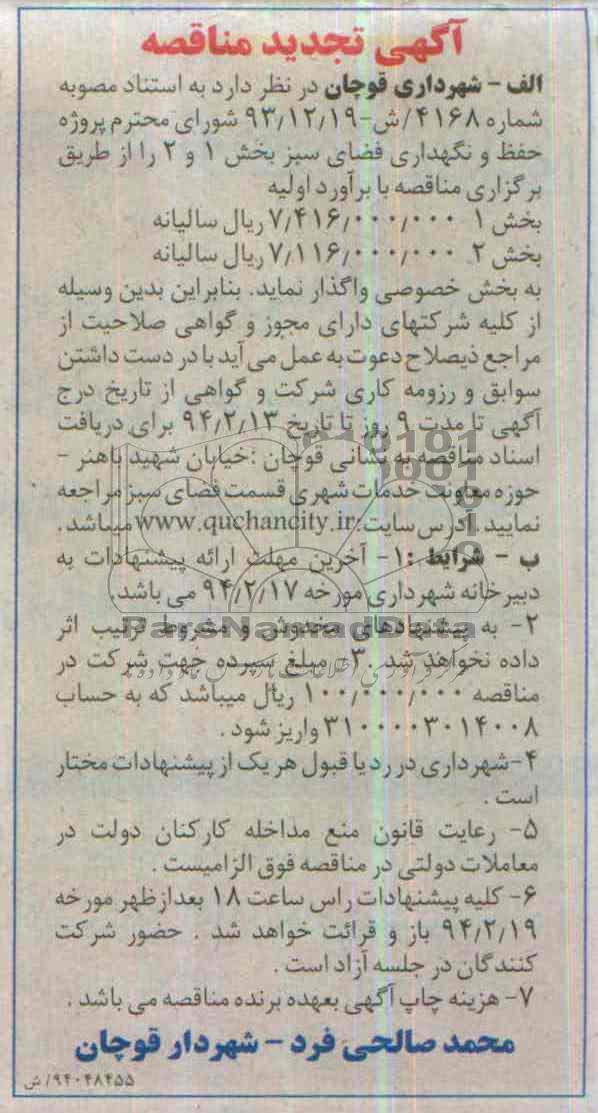 آگهی تجدید مناقصه
الف - شهرداری قوچان در نظر دارد به استناد مصوبه
شماره ۴۱۶۸/ش-۹۳/۱۲/۱۹ شورای محترم پروژه
حفظ و نگهداری فضای سبز بخش ۱ و ۲ را از طریق
برگزاری مناقصه با برآورد اولیه
بخش ۱ ۷/۴۱۶/۰۰۰/۰۰۰ ریال سالیانه
بخش ۲ ۷/۱۱۶/۰۰۰/۰۰۰ ریال سالیانه
به بخش خصوصی واگذار نماید. بنابراین بدین وسیله
از کلیه شرکتهای دارای مجوز و گواهی صلاحیت از
مراجع ذیصلاح دعوت به عمل می آید با در دست داشتن
سوابق و رزومه کاری شرکت و گواهی از تاریخ درج
آگهی تا مدت ۹ روز تا تاریخ ۹۴/۲/۱۳ برای دریافت
اسناد مناقصه به نشانی قوچان :خیابان شهید باهنر -
حوزه معاونت خدمات شهری قسمت فضای سبز مراجعه
نمایید .آدرس سایت:www.quchancity.ir میباشد .
ب - شرایط :۱- آخرین مهلت ارائه پیشنهادات به
دبیرخانه شهرداری مورخه ۹۴/۲/۱۷ می باشد.
ParsNamadData
۲- به پیشنهادهای مخدوش و مشروط ترتیب اثر
داده نخواهد شد .۳- مبلغ سپرده جهت شرکت در
مناقصه ۱۰۰/۰۰۰/۰۰۰ ریال میباشد که به حساب
۳۱۰۰۰۰۳۰۱۴۰۰۸ واریز شود .
۴-شهرداری در رد یا قبول هر یک از پیشنهادات مختار
است .
۵- رعایت قانون منع مداخله کارکنان دولت در
معاملات دولتی در مناقصه فوق الزامیست .
۶- کلیه پیشنهادات راس ساعت ۱۸ بعدازظهر مورخه
۹۴/۲/۱۹ باز و قرائت خواهد شد . حضور شرکت
کنندگان در جلسه آزاد است .
۷- هزینه چاپ آگهی بعهده برنده مناقصه می باشد .
محمد صالحی فرد - شهردار قوچان
۹۴۰۴۸۴۵۵/ش